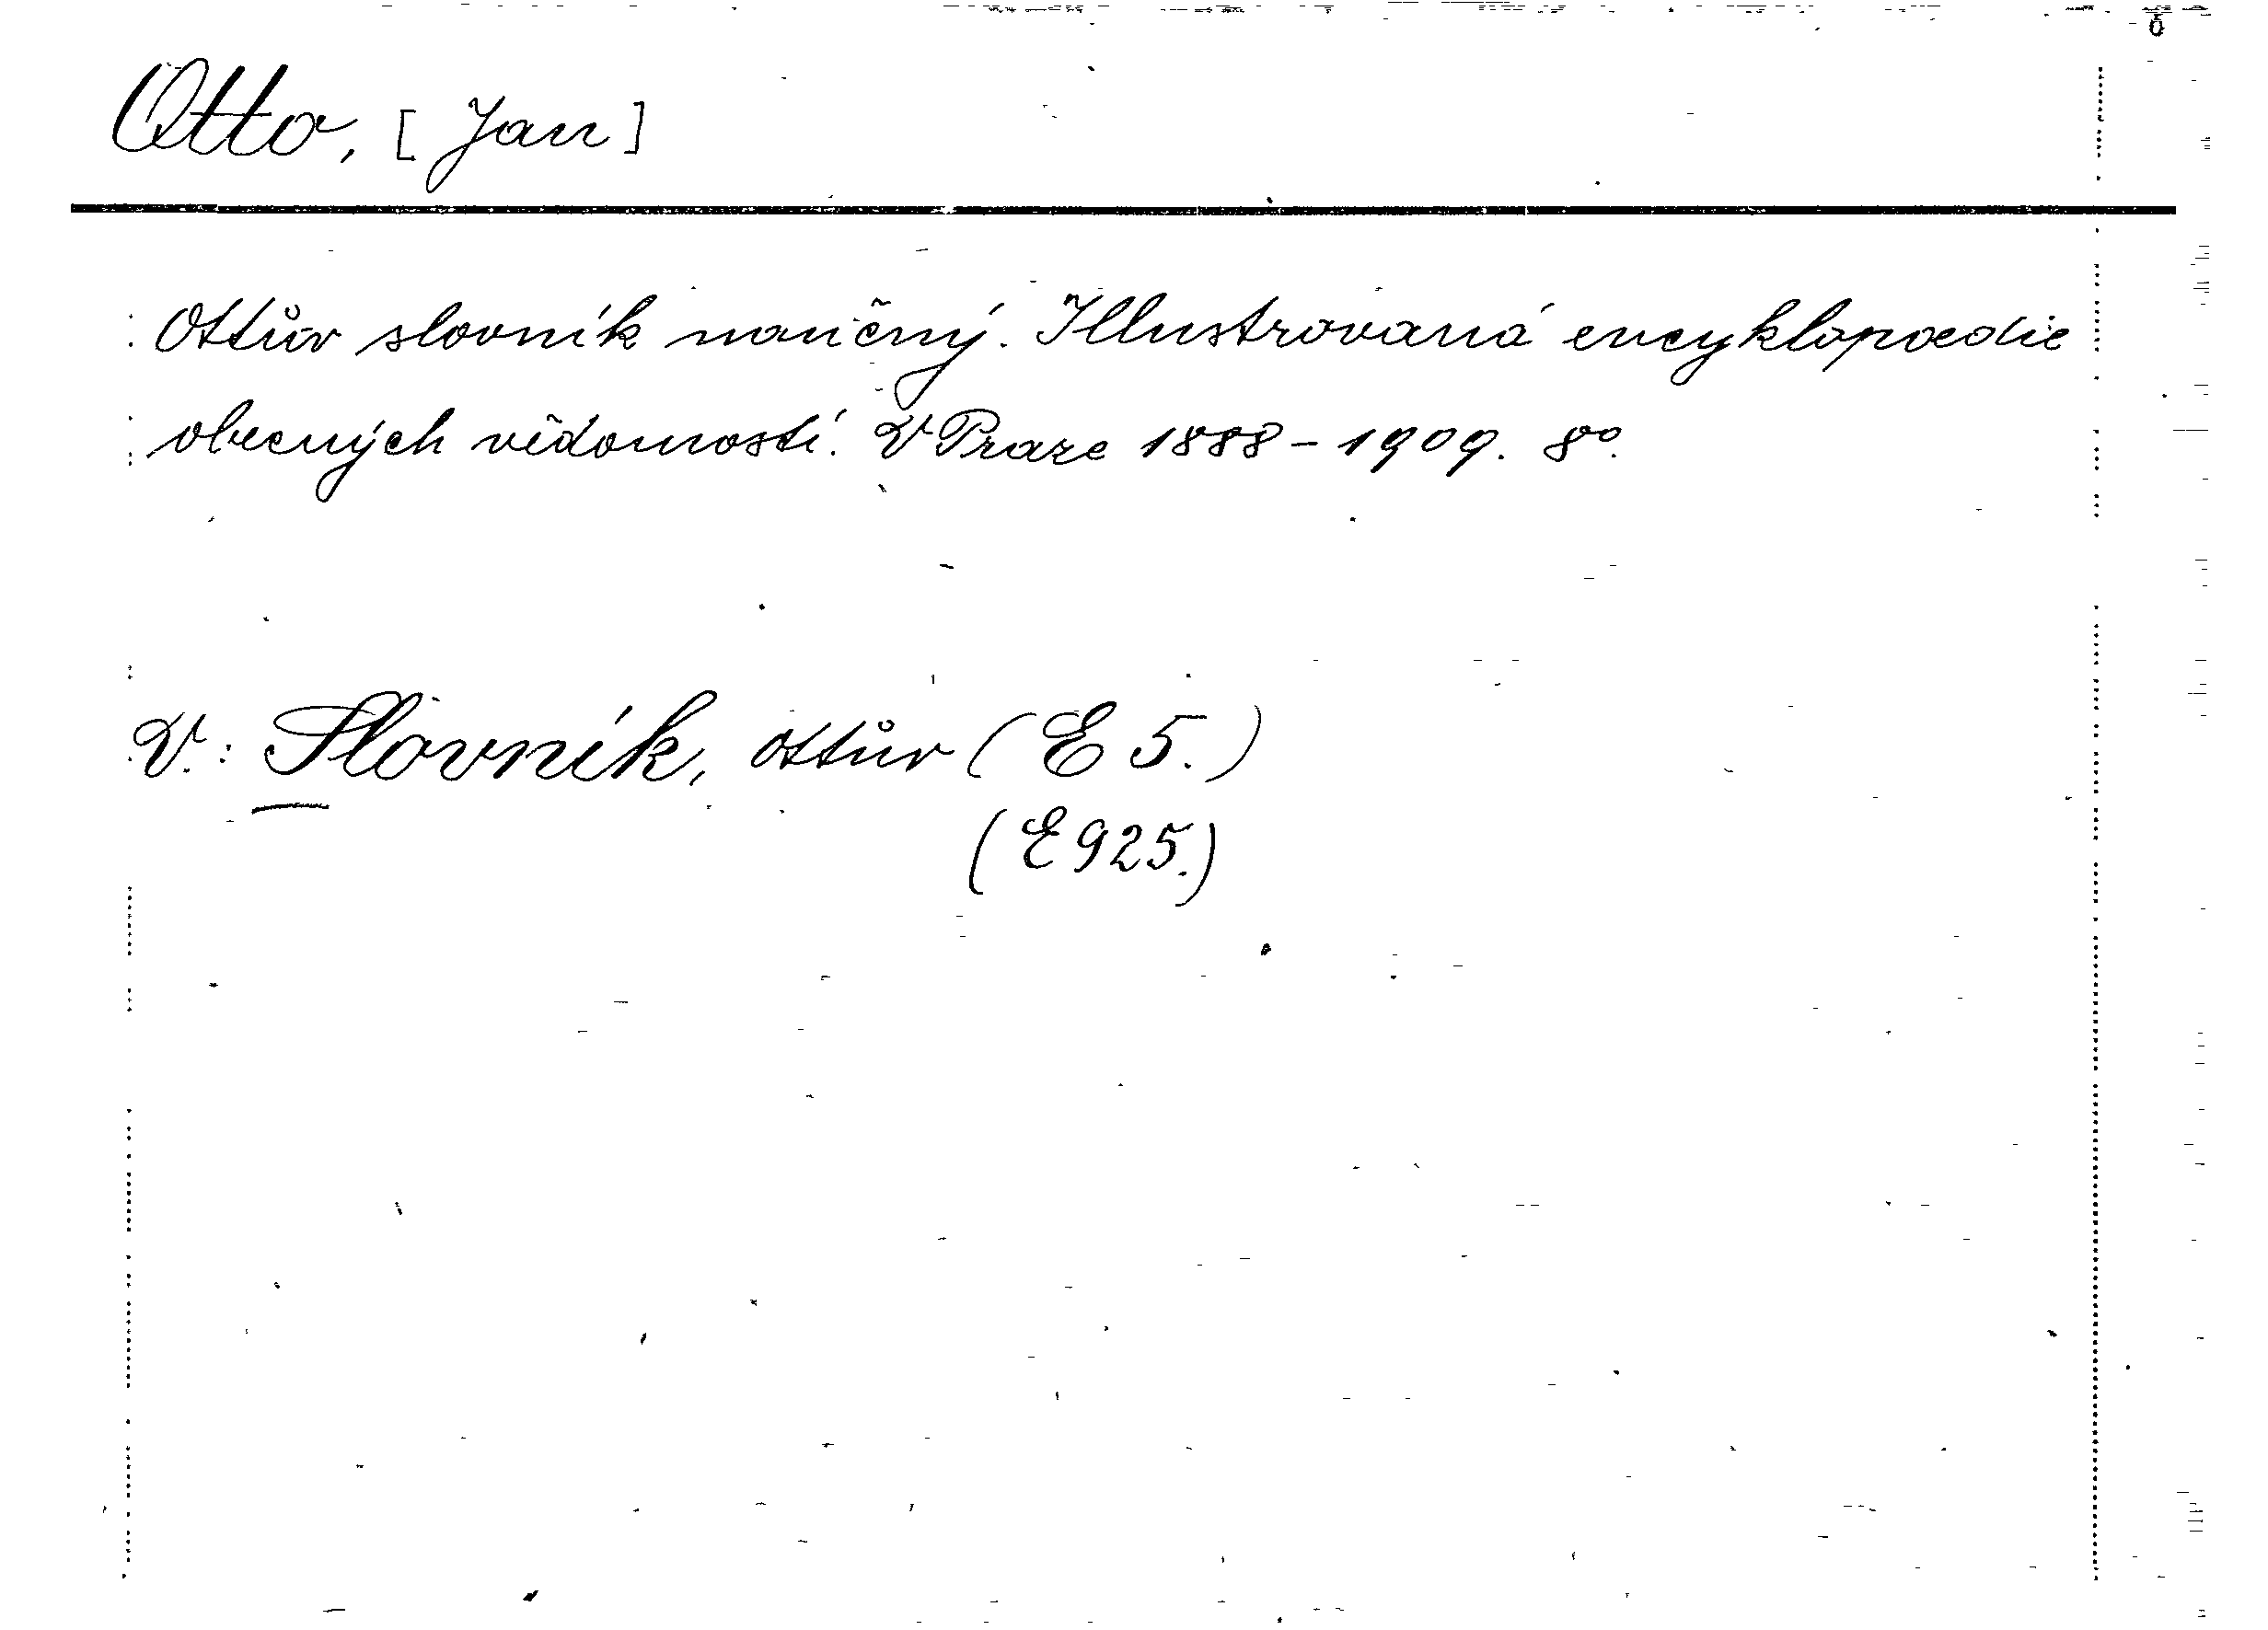 Otto, [Jan]
Ottův slovník naučný. Illustrovaná encyklopaedie
obecných vědomostí. V Praze 1888-1909. 8°.
V.: Slovník, ottův (E 5.)
(E 925.)